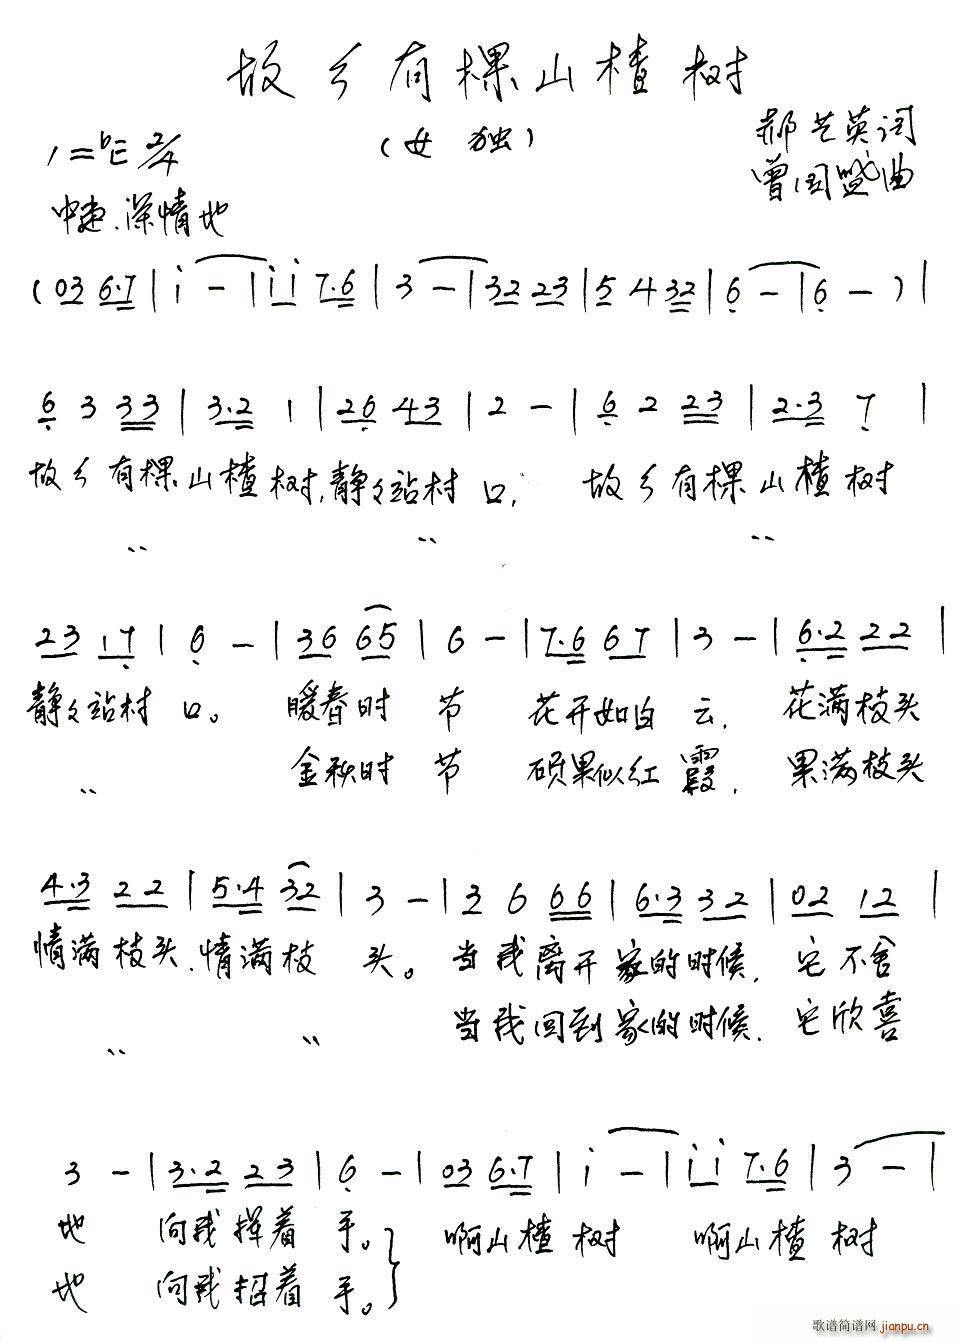 故乡有棵山楂树
(女 独)
郝艺英词
1=♭E 2/4
曾国盛曲
中速.深情地
(03 6·7 | i - | i i 7·6 | 3 - | 32 23 | 5 4 32 | 6 - | 6 - ) |
6 3 33 | 3·2 1 | 26 43 | 2 - | 6 2 23 | 2·3 7 |
故乡有棵山楂树,静々站村口, 故乡有棵山楂树
〃 〃 〃
23 17 | 6 - | 36 65 | 6 - | 7·6 67 | 3 - | 6·2 22 |
静々站村口。 暖春时 节 花开如白 云, 花满枝头
〃 金秋时 节 硕果似红 霞, 果满枝头
4·3 22 | 5·4 32 | 3 - | 3 6 66 | 6·3 32 | 02 12 |
情满枝头,情满枝 头。 当我离开家的时候, 它不舍
〃 〃 当我回到家的时候, 它欣喜
3 - | 3·2 23 | 6 - | 03 6·7 | i - | i i 7·6 | 3 - |
地 向我挥着 手。 啊山楂树 啊山楂树
地 向我招着 手。
歌谱简谱网 jianpu.cn